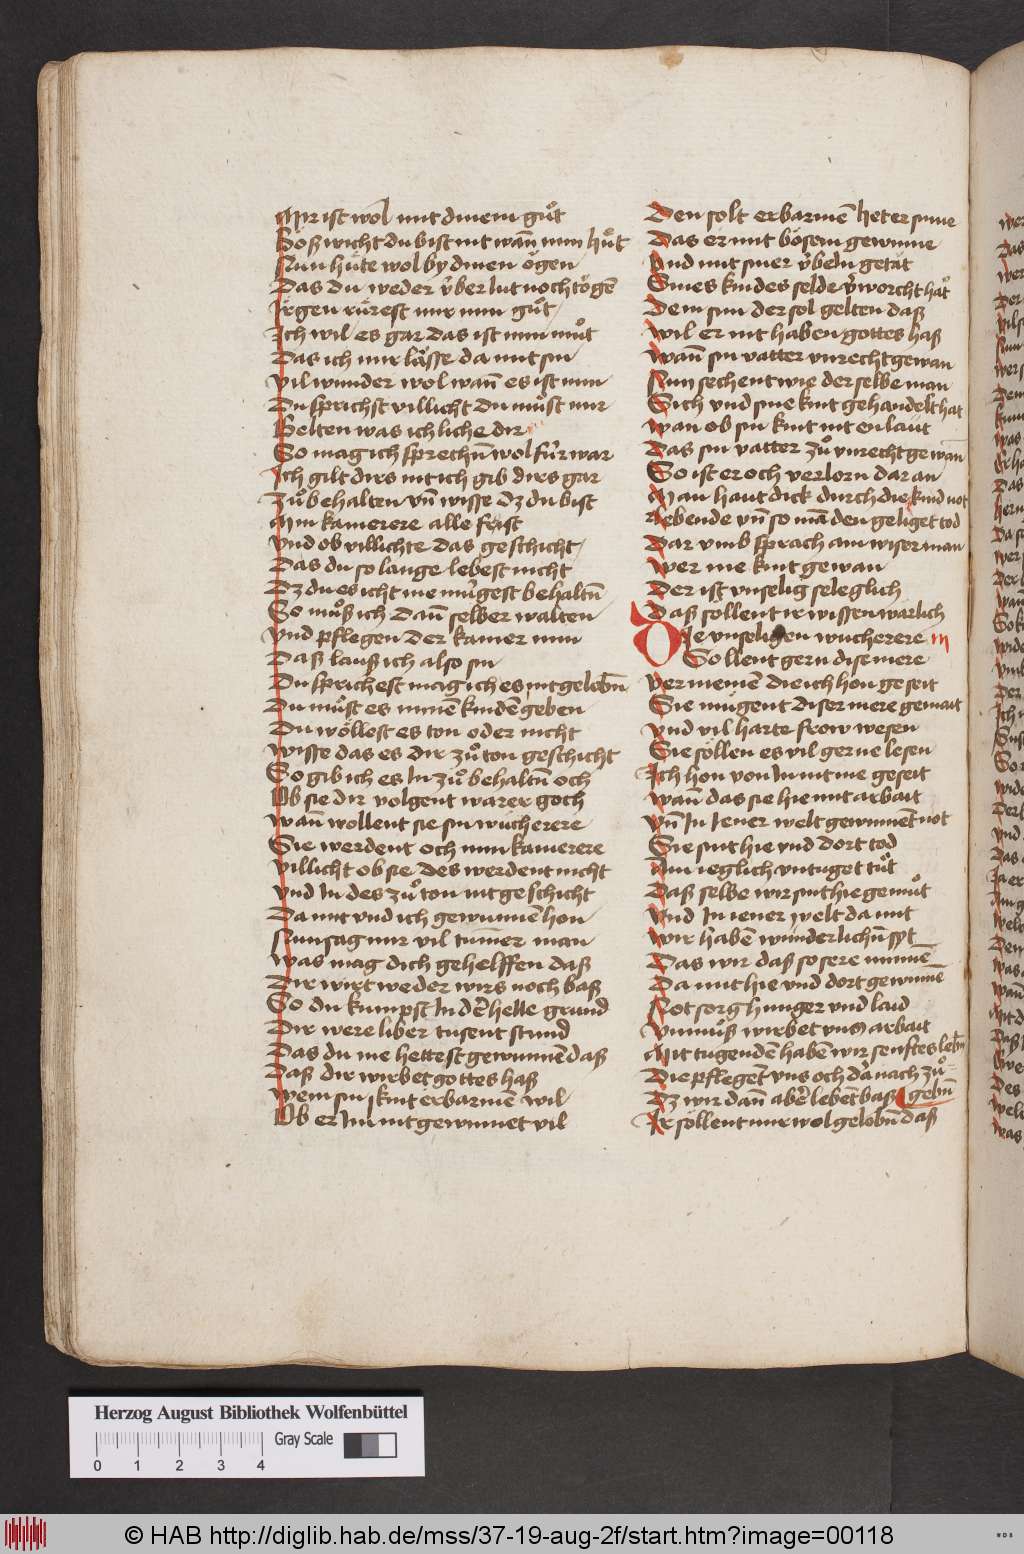 Mir ist wol mit dinem guͦt
Boͤßwicht du bist nit wañ min huͦt
Nun huͤte wol by dinen oͤgen
Das du weder v̈ber lut noch toͤgē
Irgen ruͤrest mir min guͦt
Ich wil es gar das ist min muͦt
Das ich mir laͤsse da mit sin
Vil wunder wol wañ es ist min
Du sprichst villicht du muͦst mir
Gelten was ich liche dir
So mag ich sprechñ wol für war
Ich gilt dirs nit ich gib dirs gar
Zuͦ behalten vñ wisse dz du bist
Min kamerere alle frist
Vnd ob villichte das geschicht
Das du so lange lebest nicht
Dz du es icht me mügest behaltñ
So muͦß ich dañ selber walten
Vnd pflegen der kamer min
Daß lauß ich also sin
Du sprichest mag ich es nit gelobñ
Du muͦst es minnē kindē geben
Du woͤllest es ton oder nicht
Wisse das es dir zuͦ ton geschicht
So gib ich es In zuͦ behaltñ och
Ob sie dir volgent warer goch
Wañ wollent sie sin wücherere
Sie werdent och min kamerere
Villicht ob sie des werdent nicht
Vnd In des zuͦ ton nit geschicht
Da mit vnd ich gewunnen hon
Nun sag mir vil tum̄er man
Was mag dich gehelffen daß
Dir wirt weder wirs noch baß
So du kumpst In dˀ helle grund
Dir were liber tusent stund
Das du nie hettest gewunnē daß
Daß dir wirbet gottes haß
Wem sin kint erbarmē wil
Ob er Im nit gewinnet vil
Den solt erbarmē het er sinne
Das er mit boͤsem gewinne
Vnd mit siner v̈beln getaͤt
Sines kindes selde v̈worcht haͦt
Dem sin der sol gelten daß
Wil er nit haben gottes haß
Wañ sin vatter vnrecht gewan
Nun sechent wie der selbe man
Sich vnd sine kint gehandelt hat
Wan ob sin kint nit en laut
Das sin vatter zuͦ vnrecht gewan
So ist er och verlorn dar an
Man haut dick durch die kind not
Lebende vñ so mā den geliget tod
Dar vmb sprach ain wiser man
Wer nie kint gewan
Der ist vnselig seleglich
Daß sollent ir wissen warlich
Die vnseligen wucherere
Sollent gern dise mere
Vernemen die ich hon geseit
Sie mügent diser mere gemait
Vnd vil harte frow wesen
Sie soͤllen es vil gerne lesen
Ich hon von In nit me geseit
Wañ das sie hie mit arbait
Vñ In Iener welt gewinnēt not
Sie sint hie vnd dort tod
Ain ieglich vntuget tuͦt
Daß selbe wir sint hie gemuͦt
Vnd In iener welt da mit
Wir haben wünderlichñ syt
Das wir daß so sere minnē
Da mit hie vnd dort gewinnē
Not sorg hunger vnd laid
Vnmuͦß wirbet vns arbait
Mit tugenden haben wir senftes lebñ
Die pflegēt vns och dˀ nach zuͦ
Dz wir dañ abˀ lebēt baß gebñ
Ir soͤllent mir wol gelobñ daß
Herzog August Bibliothek Wolfenbüttel
Gray Scale
0 1 2 3 4
© HAB http://diglib.hab.de/mss/37-19-aug-2f/start.htm?image=00118